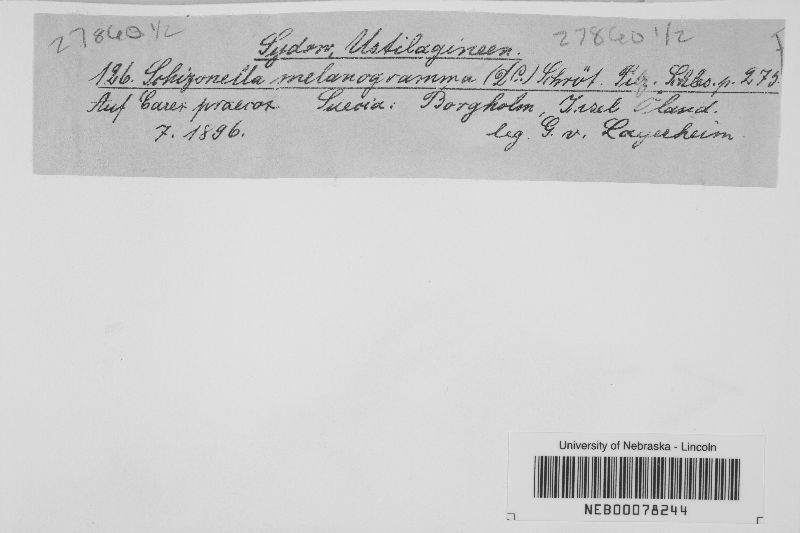 27860 1/2 27860 1/2
Sydow, Ustilagineen.
126. Schizonella melanogramma (DC.) Schröt. Pilz. Schles. p. 275
Auf Carex praecox Suecia: Borgholm, Insel Öland.
7. 1896. leg. G. v. Lagerheim.
University of Nebraska - Lincoln
NEB00078244